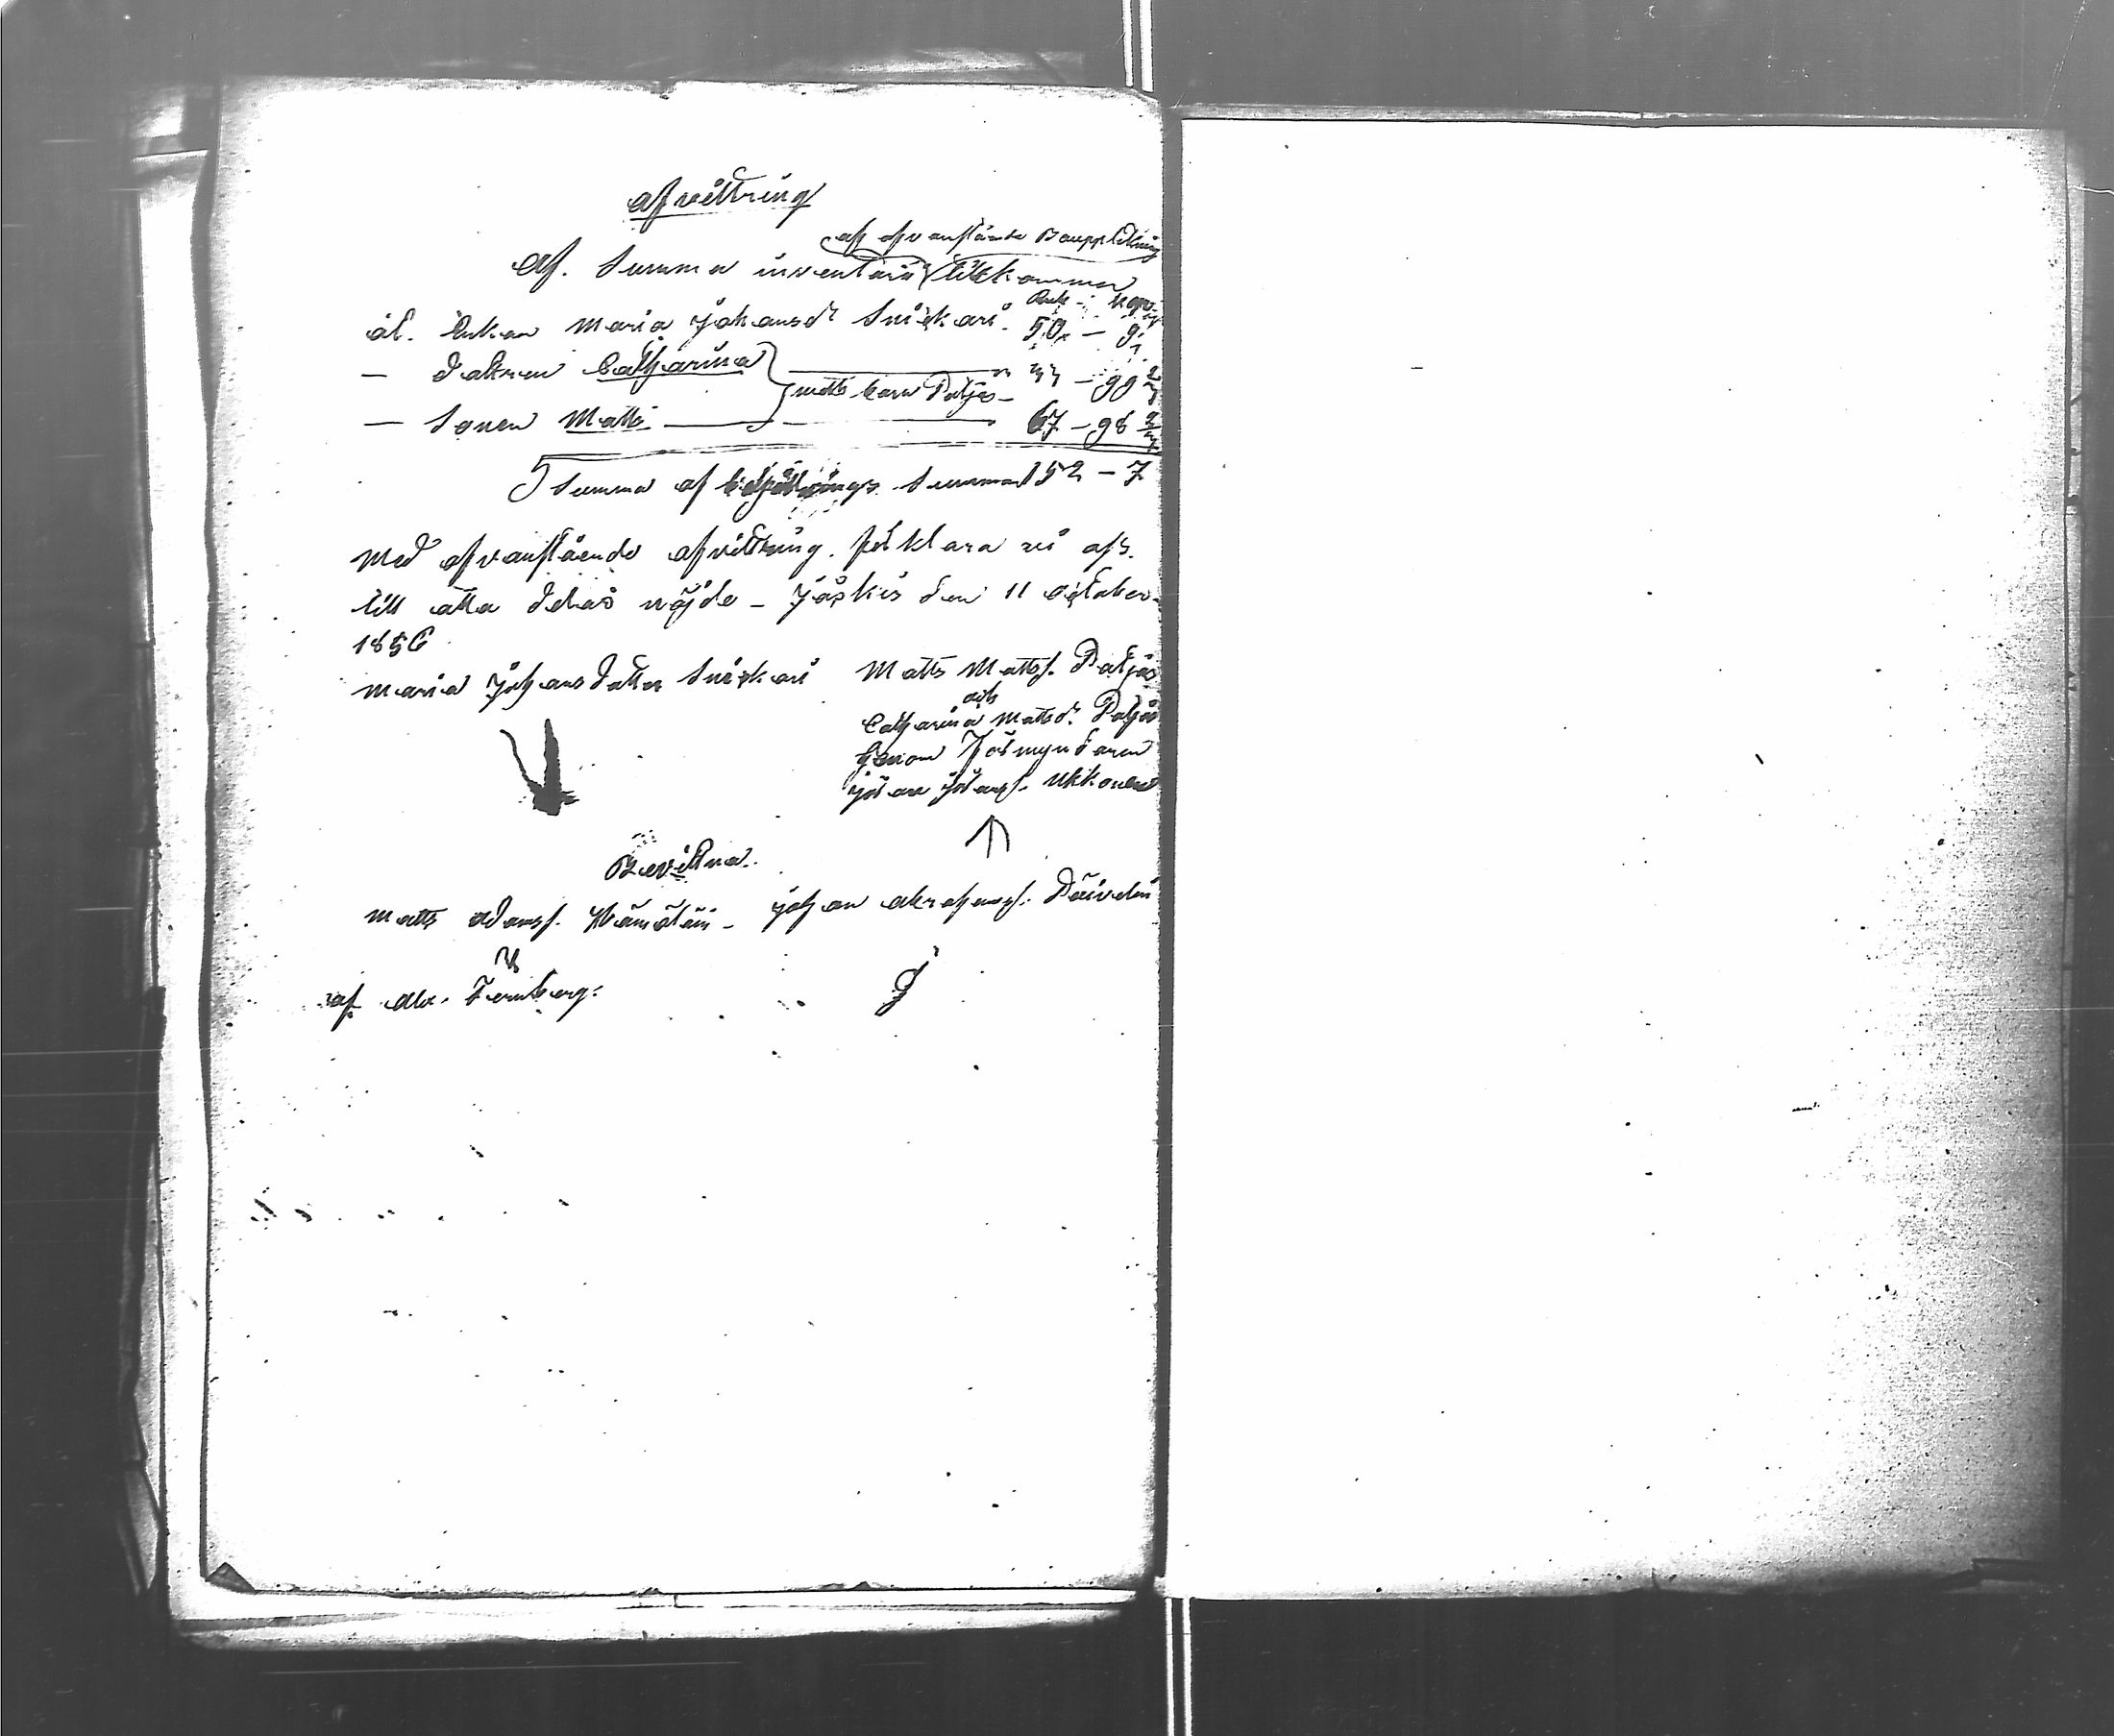 afvittring
af ofvanstånde Bouppteckning
Af. Summa inventarii tillkommer
Rub - Kop
åt. Enkan Maria Johansdr Snickari. 50 - 9
— dotren Catharina — 33 - 99 2/3
Matts barn Patjas
— Sonen Matts — 67 - 98 2/3
Summa af Summan 152 - 7
Med ofvanstående afvittring. förklara vi oss.
till alla delar nöjde - Jäskis den 11 October
1856
Maria Johansdotter Snickari Matts Mattss. Patjas
och
Catharina Mattsdr. Patjas
Genom Förmyndaren
Johan Johanss. Ukkonen
Bevittna.
Matts Adamss. Hämäläin - Johan Abrahamss. Päivelin
af Alex. Ternberg.